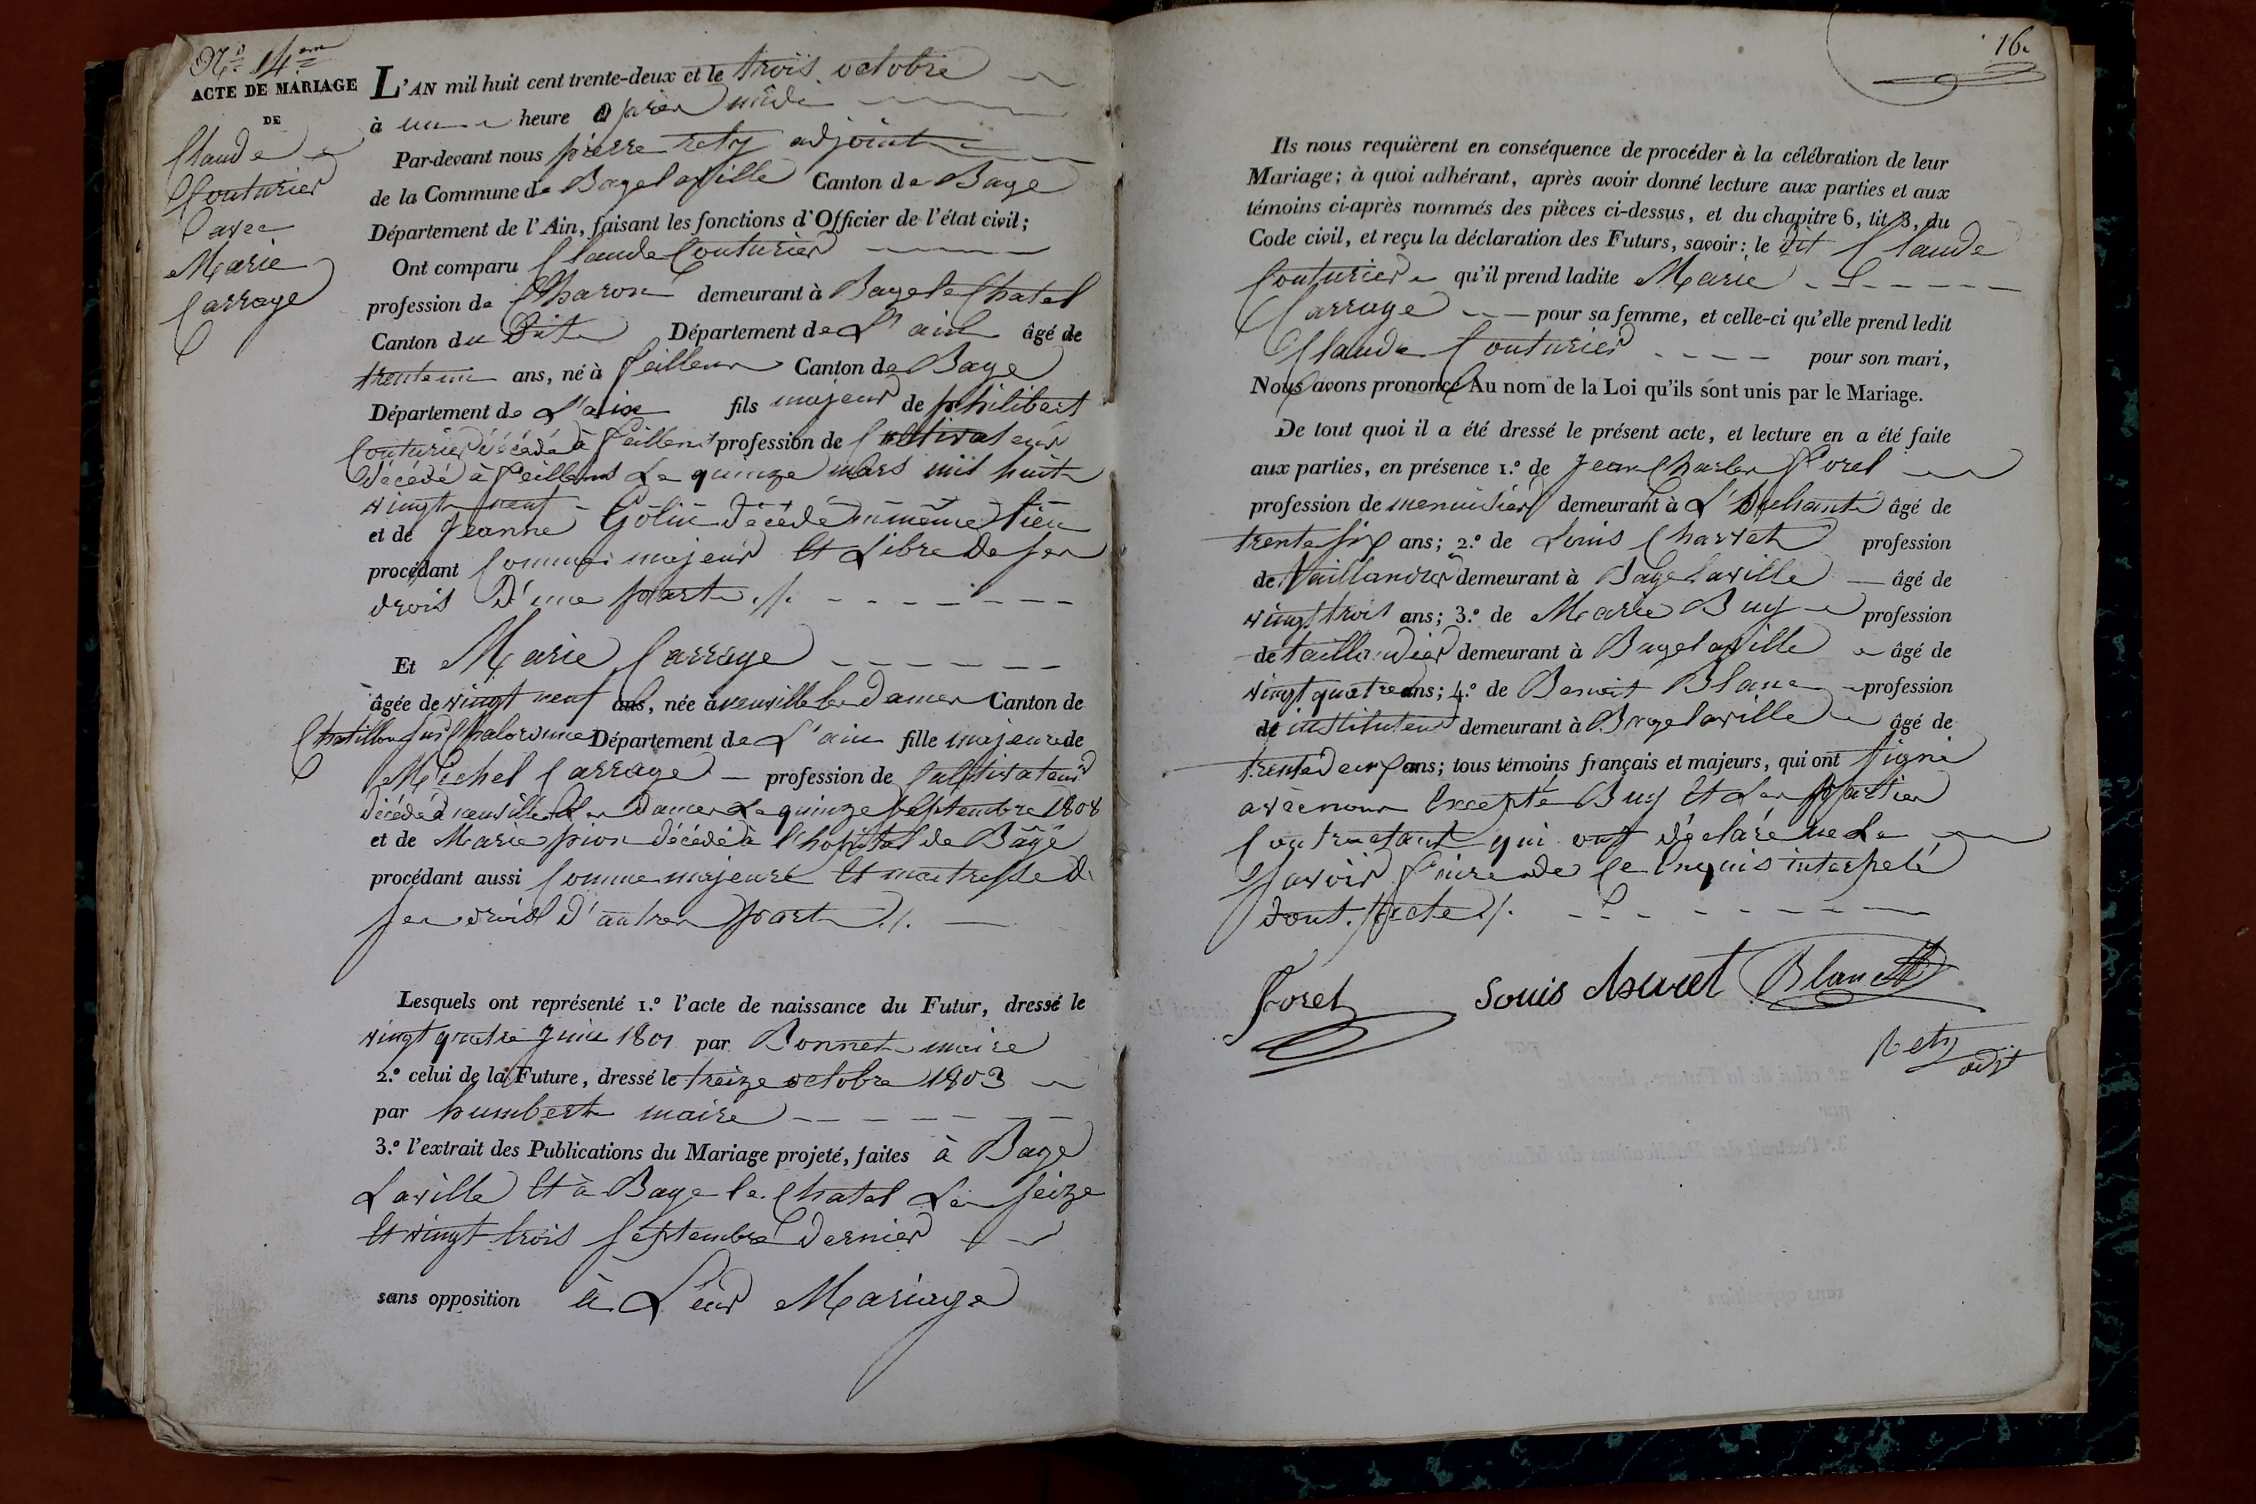 N.o 14eme
ACTE DE MARIAGE
DE
Claude
Couturier
avec
Marie
Carrage
L'AN mil huit cent trente-deux et le trois octobre
à une heure après midi
Par-devant nous pierre rety adjoint
de la Commune de Bagelaville Canton de Bage
Département de l'Ain, faisant les fonctions d'Officier de l'état civil;
Ont comparu Claude Couturier
profession de Charon demeurant à Bage le Chatel
Canton du Dit Département de L'ain âgé de
trente un ans, né à feillens Canton de Bage
Département de L'ain fils majeur de philibert
Couturier décédé à feillens profession de Cultivateur
décédé à feillens Le quinze mars mil huit
vingt neuf
et de Jeanne Golin décédé même lieu
procédant Comme majeur Et Libre de ses
drois D'une part ./.
Et Marie Carrage
âgée de vingt neuf ans, née à neuville les Dames Canton de
Chatillon sur Chalaronne Département de L'ain fille majeure de
Michel Carrage profession de Cultivateur
décédé à neuville les Dames Le quinze septembre 1808
et de Marie pion décédé à l'hopital de Bâgé
procédant aussi Comme majeure Et maitresse de
ses droid D'autres part ./.
Lesquels ont représenté 1.º l'acte de naissance du Futur, dressé le
vingt quatre Juin 1801 par Bonnet maire
2.º celui de la Future, dressé le treize octobre 1803
par humbert maire
3.º l'extrait des Publications du Mariage projeté, faites à Bage
Laville Et à Bage le Chatel Les seize
Et vingt trois septembre Dernier
sans opposition à Leur Mariage
16.
Ils nous requièrent en conséquence de procéder à la célébration de leur
Mariage; à quoi adhérant, après avoir donné lecture aux parties et aux
témoins ci-après nommés des pièces ci-dessus, et du chapitre 6, tit 3, du
Code civil, et reçu la déclaration des Futurs, savoir: le Dit Claude
Couturier qu'il prend ladite Marie
Carrage pour sa femme, et celle-ci qu'elle prend ledit
Claude Couturier pour son mari,
Nous avons prononcé Au nom de la Loi qu'ils sont unis par le Mariage.
De tout quoi il a été dressé le présent acte, et lecture en a été faite
aux parties, en présence 1.º de Jean Charles forel
profession de menuisier demeurant à âgé de
trente six ans; 2.º de Louis Charvet profession
de taillandier demeurant à Bagelaville âgé de
vingt trois ans; 3.º de Marie Buy profession
de taillandier demeurant à Bagelaville âgé de
vingt quatre ans; 4.º de Benoit Blanc profession
de instituteur demeurant à Bagelaville âgé de
trente deux ans; tous témoins français et majeurs, qui ont signé
avec nous Excepté Buy Et Les parties
Contractant qui ont déclaré ne Le
savoir faire de ce Enquis interpelé
dont acte ./.
forel
Louis Charvet
Blanc
Rety
adjt